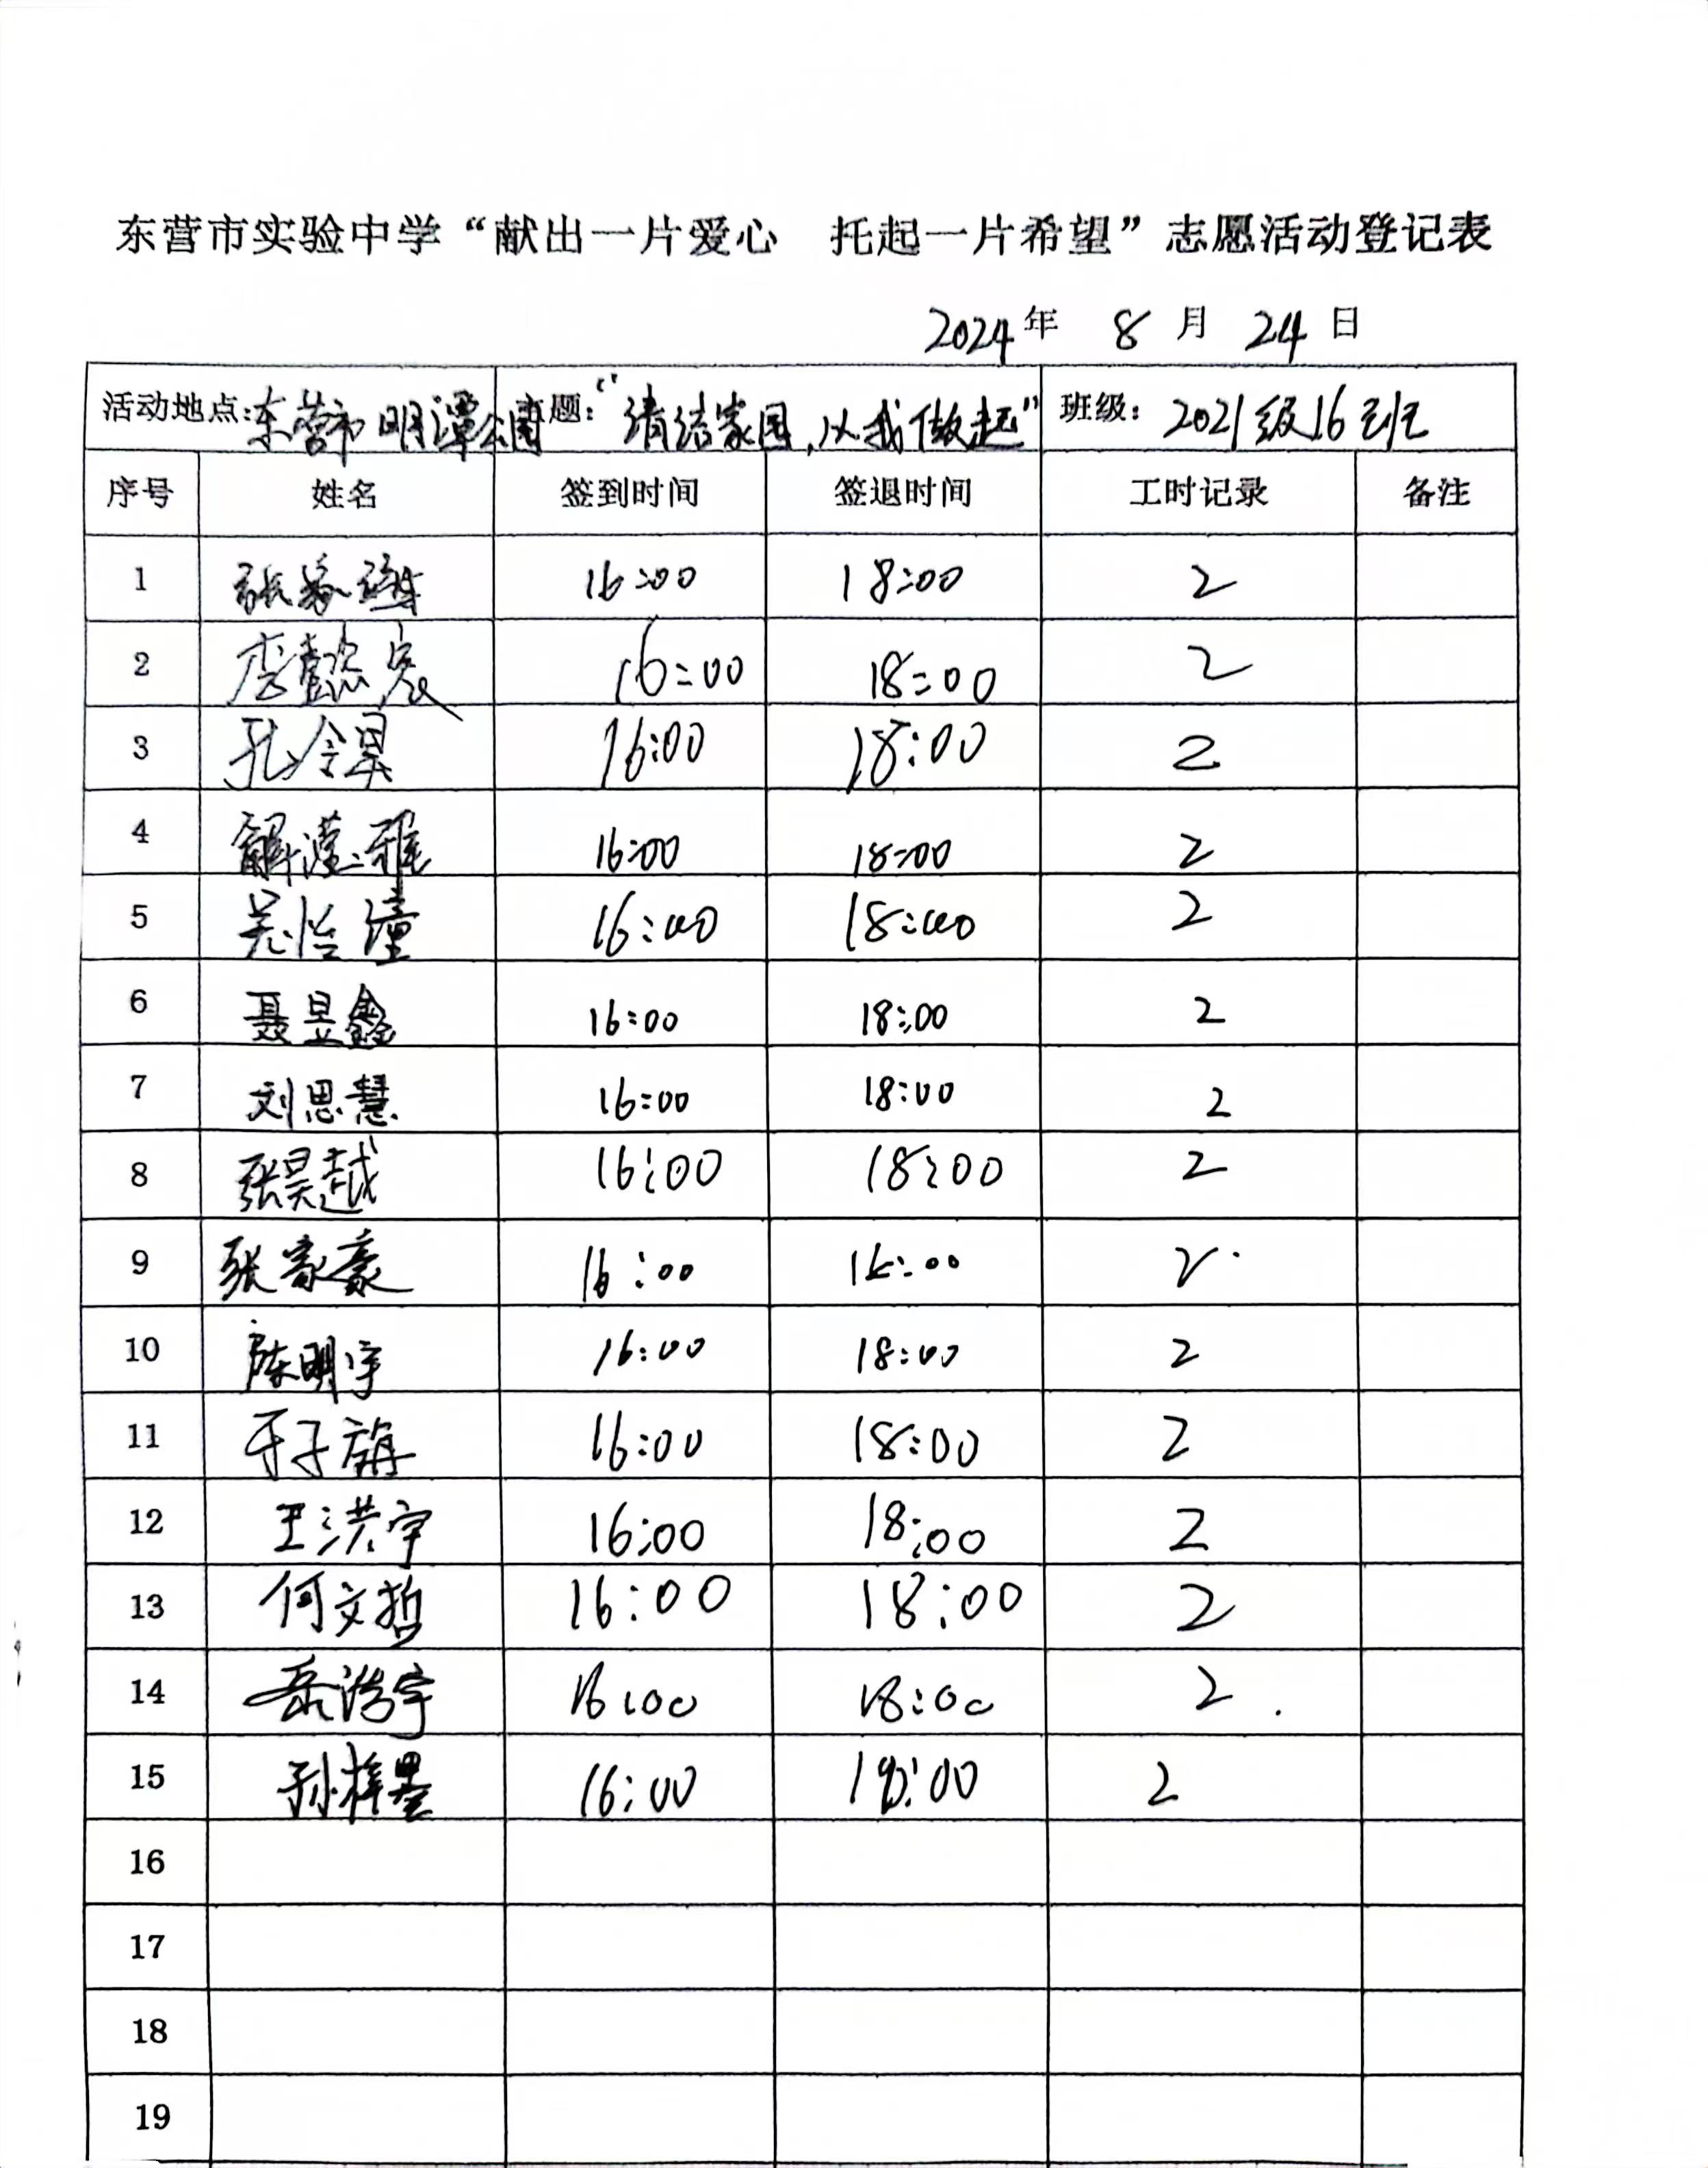 东营市实验中学“献出一片爱心 托起一片希望”志愿活动登记表
2024年 8 月 24 日
活动地点:东营市明潭公园 主题:“清洁家园,从我做起” 班级:2021级16班
序号 姓名 签到时间 签退时间 工时记录 备注
1 张 16:00 18:00 2
2 李懿宸 16:00 18:00 2
3 孔令昊 16:00 18:00 2
4 解滢雅 16:00 18:00 2
5 吴怡潼 16:00 18:00 2
6 聂昱鑫 16:00 18:00 2
7 刘思慧 16:00 18:00 2
8 张昊越 16:00 18:00 2
9 张家豪 16:00 18:00 2
10 陈明宇 16:00 18:00 2
11 于子旃 16:00 18:00 2
12 王洪宇 16:00 18:00 2
13 何文哲 16:00 18:00 2
14 岳浩宇 16:00 18:00 2
15 孙梓墨 16:00 18:00 2
16
17
18
19